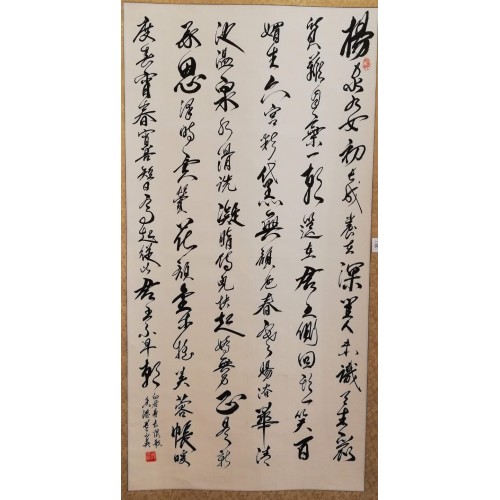 楊家有女初長成養在深閨人未識天生麗
質難自棄一朝選在君王側回頭一笑百
媚生六宮粉黛無顏色春寒賜浴華清
池溫泉水滑洗凝脂侍兒扶起嬌無力正是新
承恩澤時雲鬢花顏金步搖芙蓉帳暖
度春宵春宵苦短日高起從此君王不早朝
白居易長恨歌